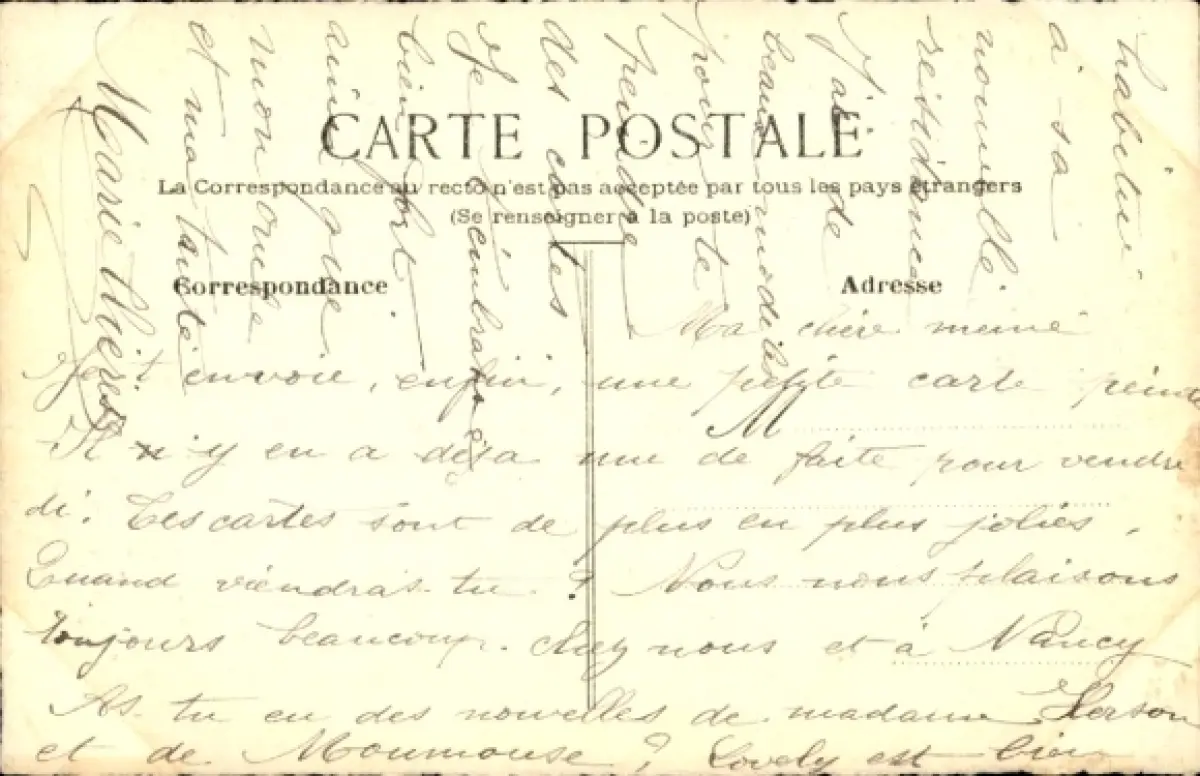 CARTE POSTALE
La Correspondance au recto n'est pas acceptée par tous les pays étrangers
(Se renseigner à la poste)
Correspondance
Adresse
M
Ma chère
Je t'envoie, enfin, une petite carte peinte
Il y en a déja une de faite pour vendre
di. Tes cartes sont de plus en plus jolies.
Quand viendras-tu ? Nous nous plaisons
toujours beaucoup chez nous et à Nancy
As-tu eu des nouvelles de madame
et de Moumouse ? Lovely est bien
habitué
à sa
nouvelle
résidence
J'ai de
beaux modèles
pour te
peindre
des cartes
Je t'embrasse
bien fort
ainsi que
mon oncle
et ma tante
Marie Thérèse